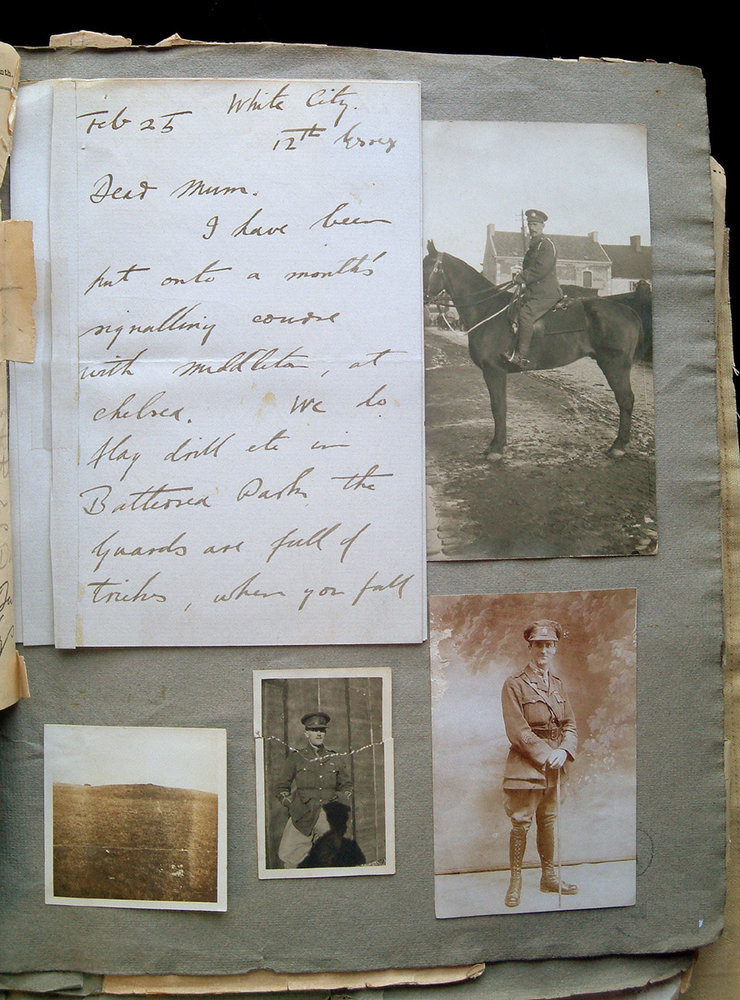 Feb 25 White City.
12th Essex
Dear Mum.
I have been
put onto a month's
signalling course
with Middleton, at
Chelsea. We do
flag drill etc in
Battersea Park, the
Guards are full of
tricks, when you fall
nth.